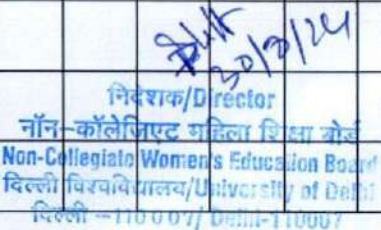 30/8/24
निदेशक/Director
नॉन-कॉलेजिएट महिला शिक्षा बोर्ड
Non-Collegiate Women's Education Board
दिल्ली विश्वविद्यालय/University of Delhi
दिल्ली-110007/Delhi-110007